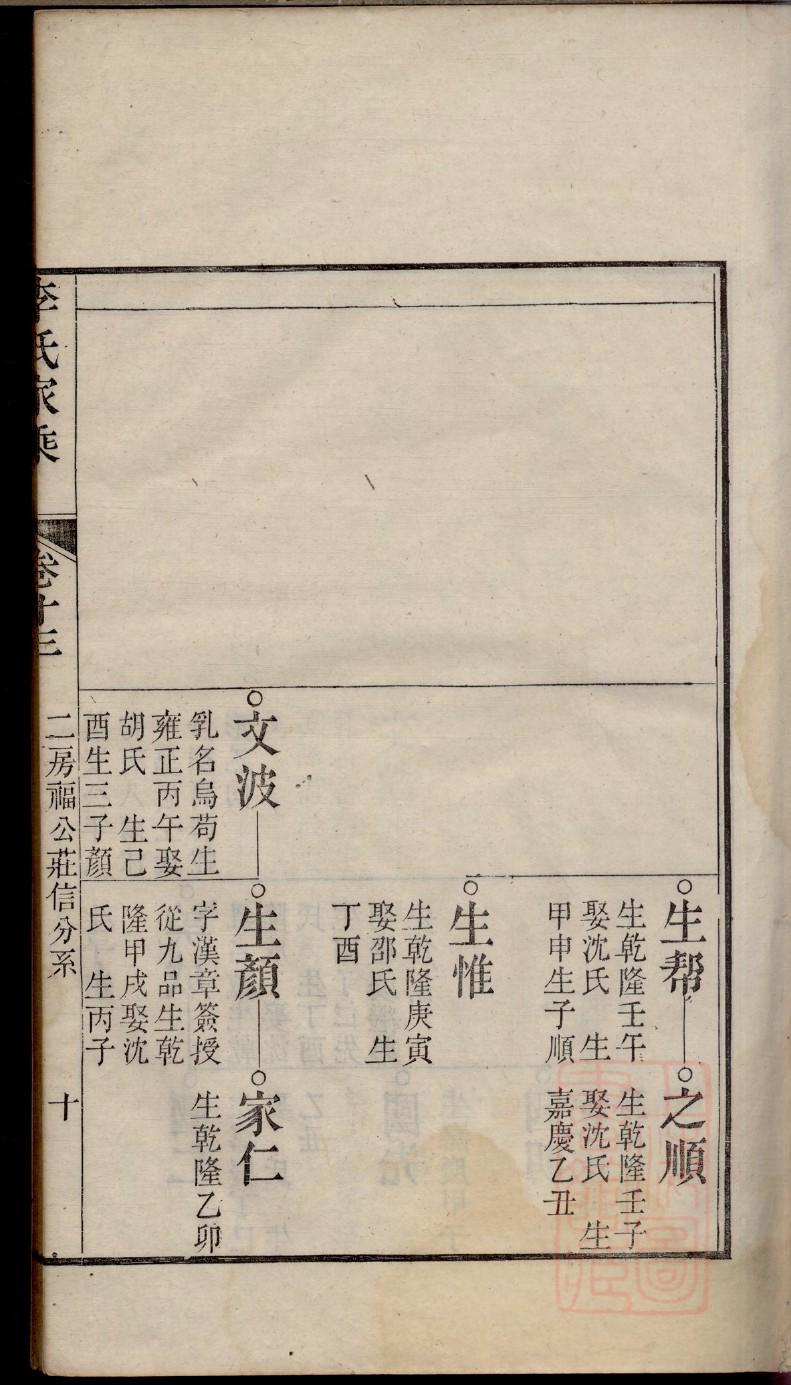 生幇
生乾隆壬午
娶沈氏　生
甲申生子順
之順
生乾隆壬子
娶沈氏　生
嘉慶乙丑
生惟
生乾隆庚寅
娶邵氏　生
丁酉
文波
乳名烏苟生
雍正丙午娶
胡氏　生己
酉生三子顏
生顏
字漢章簽授
從九品生乾
隆甲戌娶沈
氏　生丙子
家仁
生乾隆乙卯
李氏家乘
卷十三
二房福公莊信分系
十